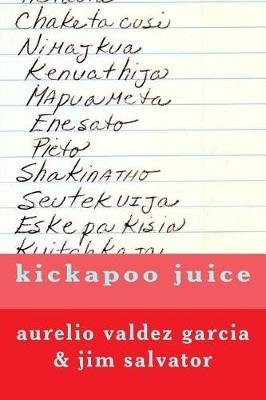 Chaketa cusi
Nimajkua
Kenuathija
Mapuameta
Enesato
Pieto
Shakinatho
Seutekuija
Eske pa kisia
kickapoo juice
aurelio valdez garcia
& jim salvator